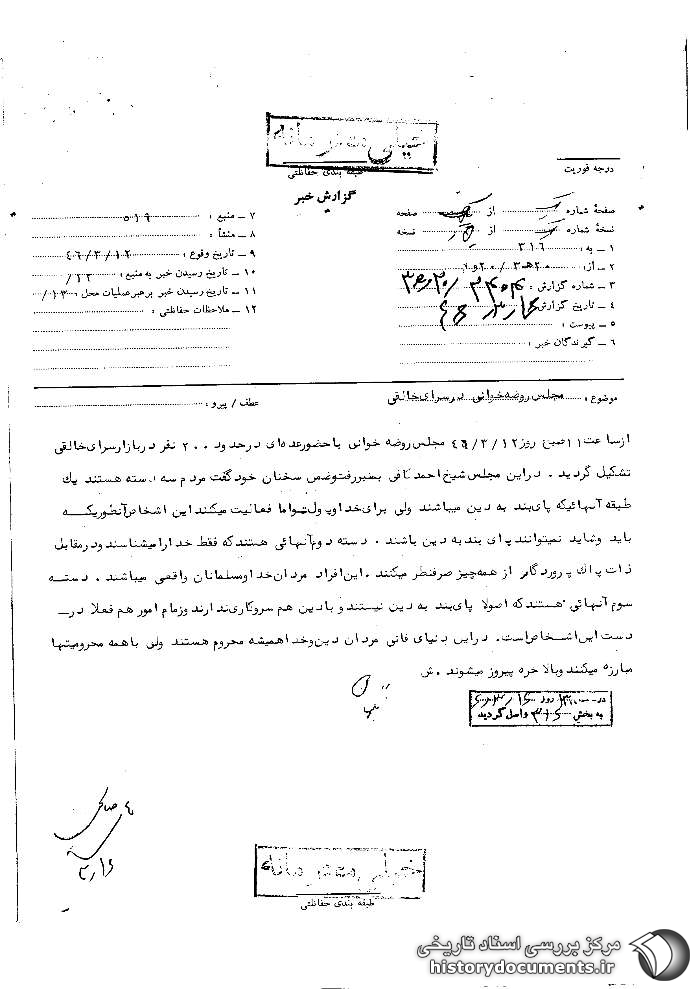 خیلی محرمانه
طبقه بندی حفاظتی
درجه فوریت
گزارش خبر
صفحهٔ شماره از صفحه
نسخهٔ شماره از نسخه
۱ ـ به : ۳۱۶
۲ ـ از : ۲۰ ه ۳
۳ ـ شماره گزارش :
۴ ـ تاریخ گزارش
۵ ـ پیوست :
۶ ـ گیرندگان خبر :
۷ ـ منبع : ۵۱۹
۸ ـ منشأ :
۹ ـ تاریخ وقوع : ۴۶/۳/۱۲
۱۰ ـ تاریخ رسیدن خبر به منبع :
۱۱ ـ تاریخ رسیدن خبر برهبر عملیات محل : ۱۳/
۱۲ ـ ملاحظات حفاظتی :
موضوع : مجلس روضه خوانی در سرای خالقی
عطف / پیرو :
ازساعت ۱۱ صبح روز ۴۶/۳/۱۲ مجلس روضه خوانی با حضور عده ای در حدود ۲۰۰ نفر در بازار سرای خالقی
تشکیل گردید . در این مجلس شیخ احمد کافی بمنبر رفت وضمن سخنان خود گفت مردم سه دسته هستند یك
طبقه آنهائیکه پای بند به دین میباشند ولی برای خدا و پول تواما فعالیت میکنند این اشخاص آنطوریکه
باید وشاید نمیتوانند پای بند به دین باشند . دسته دوم آنهائی هستند که فقط خدا را میشناسند ودر مقابل
ذات پاك پروردگار از همه چیز صرفنظر میکنند . این افراد مردان خدا ومسلمانان واقعی میباشند . دسته
سوم آنهائی هستند که اصولا پای بند به دین نیستند و با دین هم سروکاری ندارند وزمام امور هم فعلا در
دست این اشخاص است . در این دنیای فانی مردان دین وخدا همیشه محروم هستند ولی با همه محرومیتها
مبارزه میکنند وبالا خره پیروز میشوند . ش
در روز
به بخش ۳۱۶ واصل گردید
صالحی
۳/۱۶
خیلی محرمانه
طبقه بندی حفاظتی
مرکز بررسی اسناد تاریخی
historydocuments.ir